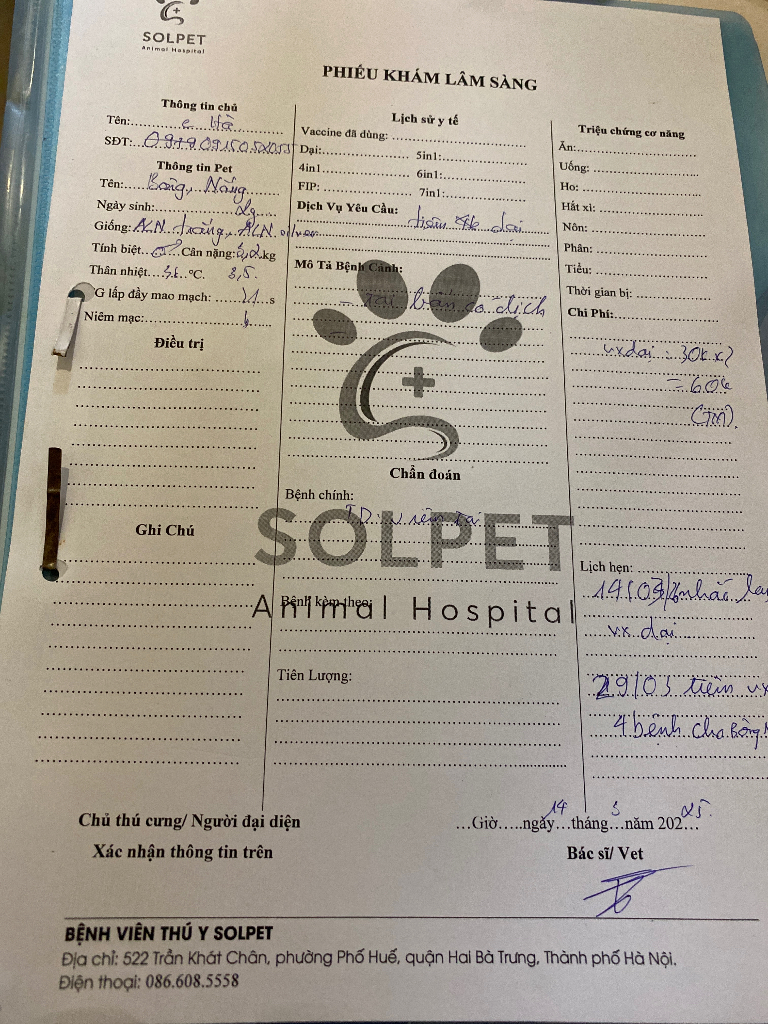 SOLPET
Animal Hospital
PHIẾU KHÁM LÂM SÀNG
Thông tin chủ
Tên: c Hà
SĐT:
Thông tin Pet
Tên: Bông, Nắng
Ngày sinh:
Giống: ALN trắng, ALN silver
Tính biệt: Cân nặng: 3,2 kg
Thân nhiệt °C. 3,5.
G lấp đầy mao mạch: s
Niêm mạc:
Điều trị
Ghi Chú
Lịch sử y tế
Vaccine đã dùng:
Dại: 5in1:
4in1 6in1:
FIP: 7in1:
Dịch Vụ Yêu Cầu: tiêm dại
Mô Tả Bệnh Cảnh:
- Tai bẩn có dịch
SOLPET
Animal Hospital
Chẩn đoán
Bệnh chính:
TD viêm tai
Bệnh kèm theo:
Tiên Lượng:
Triệu chứng cơ năng
Ăn:
Uống:
Ho:
Hắt xì:
Nôn:
Phân:
Tiểu:
Thời gian bị:
Chi Phí:
vx dại: 30k x2
= 60k
(TM)
Lịch hẹn:
nhắc
vx dại
29/03 tiêm vx
4 bệnh cho Bông
Chủ thú cưng/ Người đại diện
Xác nhận thông tin trên
...Giờ.....ngày 14 tháng 3 năm 2025.
Bác sĩ/ Vet
BỆNH VIỆN THÚ Y SOLPET
Địa chỉ: 522 Trần Khát Chân, phường Phố Huế, quận Hai Bà Trưng, Thành phố Hà Nội.
Điện thoại: 086.608.5558